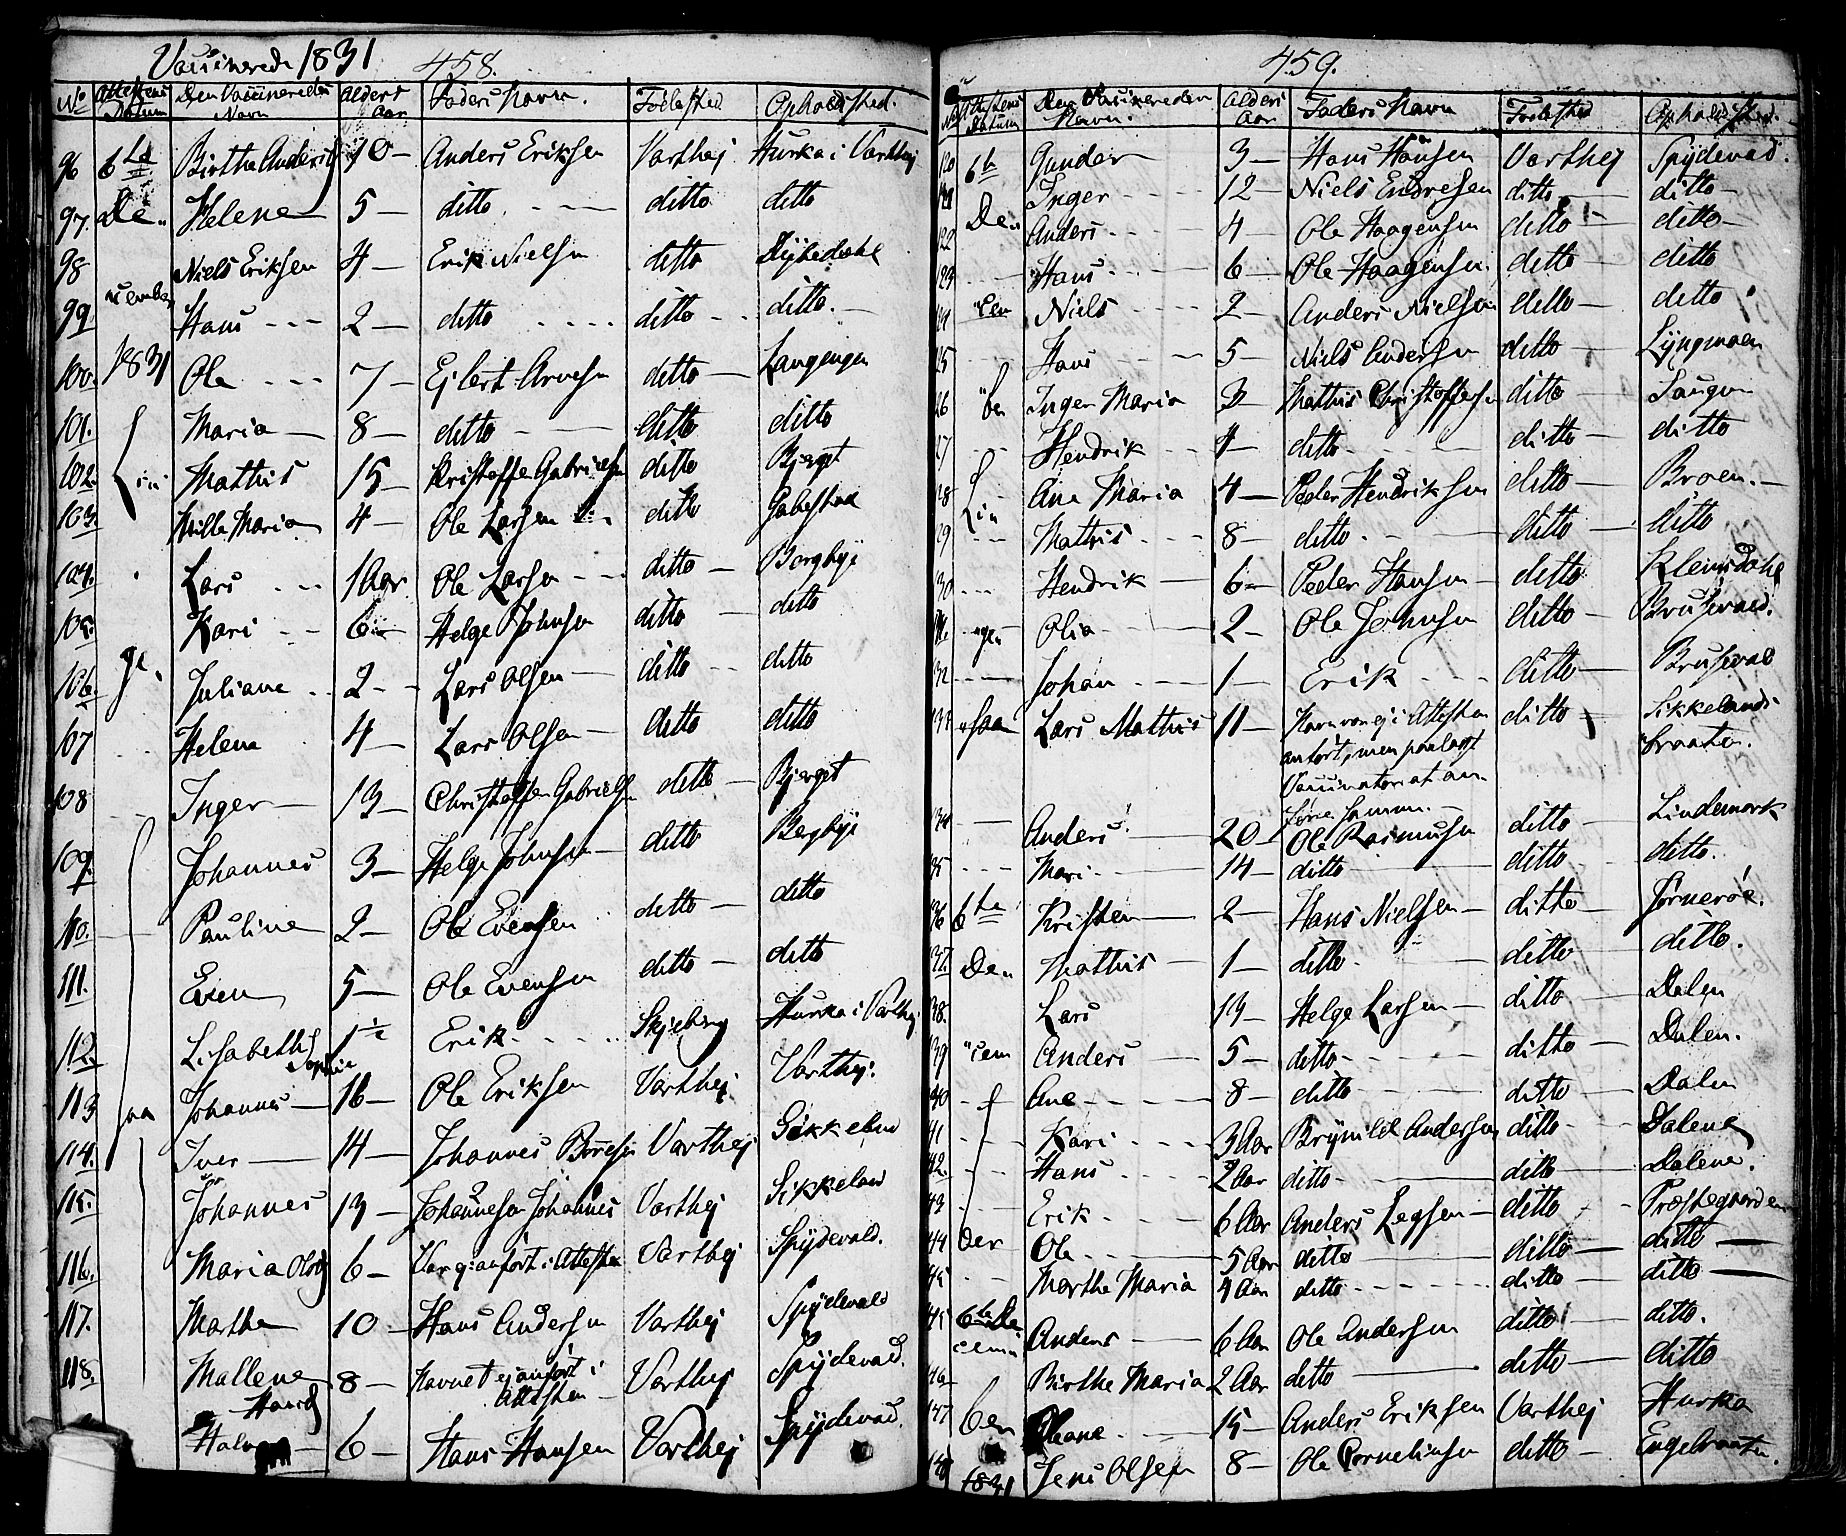 Vaccinerede 1831 458.
No Attestens Datum Den Vaccineredes Navn Alders Aar Faders Navn. Födested Opholdsted.
96 6te Birthe Andersd 10 - Anders Eriksen Varthej Hurka i Varthej
97. De- Helene 5 - ditto ditto ditto
98 Niels Eriksen 4 - Erik Nielsen ditto
99 cember Hans 2 - ditto ditto ditto.
100. 1831 Ole 7 - Ejlert Arvesen ditto - Langengen
101. Maria 8 - ditto ditto ditto
102. Mathis 15 - Kristoffe Gabrielsen ditto Bjerget
103. Maria 4 - Ole Larsen ditto
104. Lars 1 Aar Ole Larsen ditto - Borgbye
105. Kari 6 - Helge Johnsen ditto ditto
106. Juliane 2 - Lars Olsen ditto ditto
107 Helena 4 - Lars Olsen ditto ditto
108 Inger 13 - Christoffer Gabrielsen ditto - Bjerget
109. Johannes 3 - Helge Johnsen ditto
110. Pauline 2 - Ole Evensen ditto - ditto
111. Even 5 - Ole Evensen ditto - ditto
112. Lisabeth Sophie 1 Erik Skjeberg Hurka i Varthej
113 Johannes 16 - Ole Eriksen Varthej Varthej.
114. Iver 14 - Johannes Varthej Sikkeland
115. Johannes 13 - Johannesen Johannes Varthej Sikkeland
116. Maria Olsd 6 - Var ej anfört i Attesten Varthej Spydevold.
117. Marthe 10 - Hans Andersen Varthej Spydevold
118. Mallene Hansd 8 - Navnet ej anfört i Attesten - Varthej Spydevold.
Halvor 6 - Hans Hansen Varthej Spydevold.
459.
Attestens Datum Den Vaccineredes Navn. Alders Aar Faders Navn Födested Opholdsted.
120 6te Gunder 3 - Hans Hansen Varthej Spydevold.
121 Inger 12 - Niels Endresen ditto ditto -
122 De- Anders 4 - Ole Haagensen ditto ditto -
123 Hans 6 - Ole Haagensen. ditto ditto
124 cem Niels 2 - Anders Nielsen ditto - ditto
25 Hans 5 - Niels Andersen ditto Lyngmoen
26 ber Inger Maria 3 - Mathis Christoffersen ditto Saugen
27 Hendrik 1 - ditto ditto ditto
28 Ane Maria 4 - Peder Hendriksen ditto Braen. -
29 Mathis 8 - ditto. ditto ditto
30 Hendrik 6 - Peder Hansen ditto
31 Olia 2 - Ole Johnsen ditto Brusevold.
32 Johan 1 - Erik ditto Brusevold
33 Lars Mathis 11 - Navn var ej i Attesten anfört, men paalagt Vaccinatori at anföre samme. - ditto Sikkelands braaten.
34 Anders 20 - Ole Rasmusen ditto Lindemark
35 Mari 14 - ditto ditto ditto.
36 6te Kristen 2 - Hans Nielsen ditto Tørneröe.
37. De- Mathis 1 - ditto ditto ditto.
38. Lars 19 - Helge Larsen ditto Dalen
39 cem Anders 5 - ditto ditto Dalen.
40 Ane 8 - ditto ditto Dalen
41 Kari 3 Aar Brynild Andersen ditto Dalene
42. Hans 2 Aar ditto ditto Dalene.
43 Erik 6 Aar Anders ditto Præstegaarden
44 Ole 5 Aar ditto ditto ditto
45 Marthe Maria 4 Aar ditto ditto ditto
45 6te De cem Anders 6 Aar Ole Andersen ditto ditto.
46 Birthe Maria 2 Aar ditto ditto ditto
147 ber Oleane 15 - Anders Eriksen Varthej Hurka
148 1831 Jens Olsen 8 - Ole Cornelinsen ditto Engebraaten.